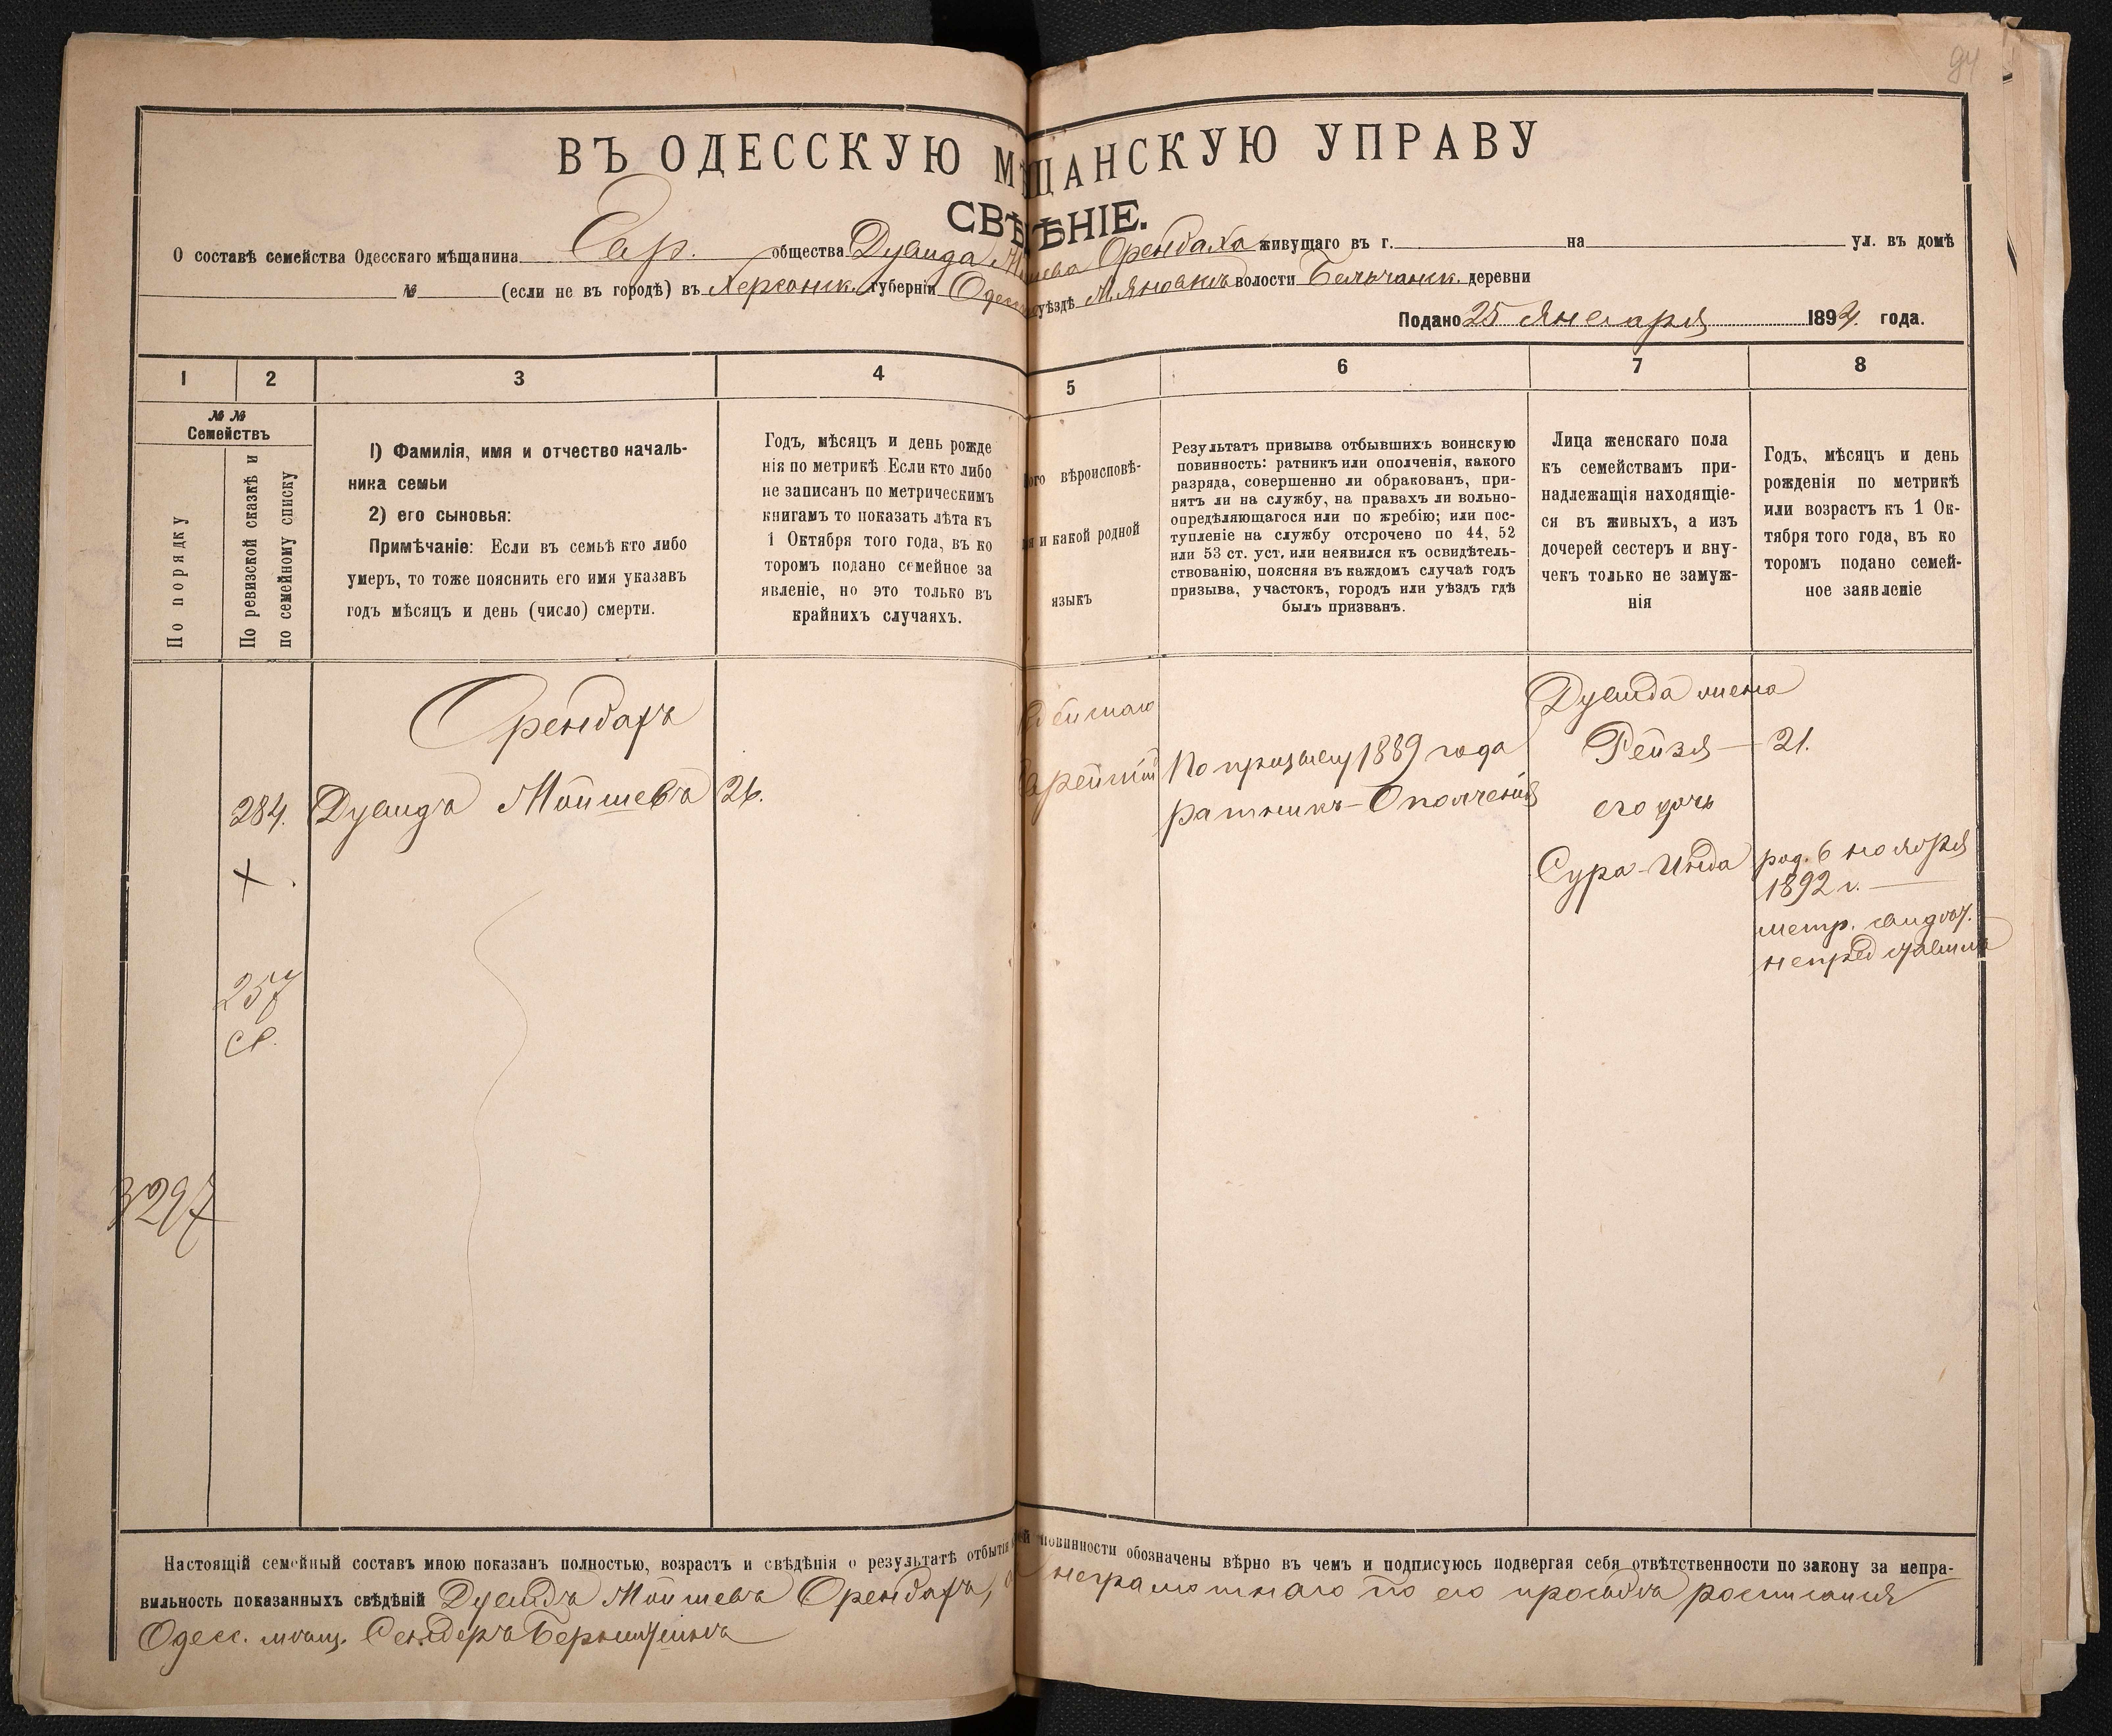 94
ВЪ ОДЕССКУЮ МѢЩАНСКУЮ УПРАВУ
СВѢДѢНІЕ.
О составѣ семейства Одесскаго мѣщанина Евр. общества Дувида Орендаха живущаго въ г. на ул. въ домѣ
№ (если не въ городѣ) въ Херсонск. губерніи Одесс уѣздѣ М. Яновкѣ волости деревни
Подано 25 Января 1894. года.
1 2 3 4 5 6 7 8
№ №
Семействъ
По порядку
По ревизской сказкѣ и
по семейному списку
1) Фамилія, имя и отчество началь-
ника семьи
2) его сыновья:
Примѣчаніе: Если въ семьѣ кто либо
умеръ, то тоже пояснить его имя указавъ
годъ мѣсяцъ и день (число) смерти.
Годъ, мѣсяцъ и день рожде
нія по метрикѣ Если кто либо
не записанъ по метрическимъ
книгамъ то показать лѣта къ
1 Октября того года, въ ко
торомъ подано семейное за
явленіе, но это только въ
крайнихъ случаяхъ.
ого вѣроисповѣ-
ія и какой родной
языкъ
Результатъ призыва отбывшихъ воинскую
повинность: ратникъ или ополченія, какого
разряда, совершенно ли обракованъ, при-
нятъ ли на службу, на правахъ ли вольно-
опредѣляющагося или по жребію; или пос-
тупленіе на службу отсрочено по 44, 52
или 53 ст. уст. или неявился къ освидѣтель-
ствованію, поясняя въ каждомъ случаѣ годъ
призыва, участокъ, городъ или уѣздъ гдѣ
былъ призванъ.
Лица женскаго пола
къ семействамъ при-
надлежащія находящіе-
ся въ живыхъ, а изъ
дочерей сестеръ и вну-
чекъ только не замуж-
нія
Годъ, мѣсяцъ и день
рожденія по метрикѣ
или возрастъ къ 1 Ок-
тября того года, въ ко
торомъ подано семей-
ное заявленіе
Орендахъ
284. Дувидъ Мойшевъ 26.
По призыву 1889 года
ратникъ Ополченія
Дувида жена
Рейзя — 21.
его дочь
Сура-Инда род. 6 ноября
1892 г. —
метр. свидѣт.
непредставила
257
3297
Настоящій семейный составъ мною показанъ полностью, возрастъ и свѣдѣнія о результатѣ отбытія ей повинности обозначены вѣрно въ чемъ и подписуюсь подвергая себя отвѣтственности по закону за непра-
вильность показанныхъ свѣдѣній Дувидъ Мойшевъ Орендахъ, а неграмотнаго по его просьбѣ росписался
Одесс. мѣщ. Сендеръ